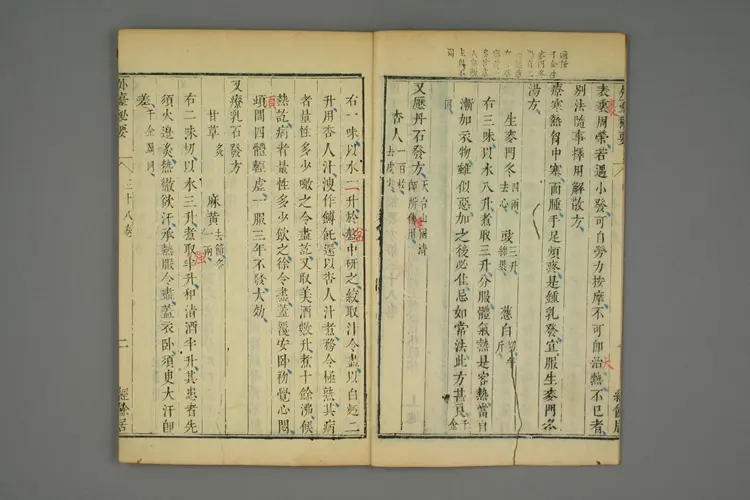 表裏周榮若遇小發可自勞力按摩不可即治熱不已者
別法隨事擇用解散方
療寒熱胷中塞面腫手足煩疼是鍾乳發宜服生麥門冬
湯方
生麥門冬四兩去心 豉三升綿裹 葱白切半斤
右三味以水八升煮取三升分服體氣熱是客熱當自
漸加衣物雖似惡加之後必佳忌如常法此方甚良千金
同
又壓丹石發方
杏人一百枚去皮尖
右一味以水二升於盤中研之絞取汁令盡以白麫二
升用杏人汁溲作餺飥還以杏人汁煮務令極熟其病
者量性多少噉之令盡訖又取美酒數升煮十餘沸候
熱訖病者量性多少飲之徐令盡蓋覆安臥初覺心悶
頃間四體輕虛一服三年不發大效
又療乳石發方
甘草炙 麻黃去節各一兩
右二味切以水三升煮取半升和清酒半升其患者先
須火邊炙熱徹欲汗承熱服令盡蓋衣臥須臾大汗即
差千金翼同
外臺秘要
三十八卷
二
經餘居